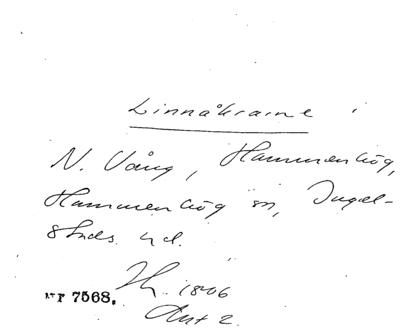 Linnåkrarne
N. Vång, Hammenhög,
Hammenhög sn, Ingel-
stads hd.
1806
Nr 7568.
Akt 2